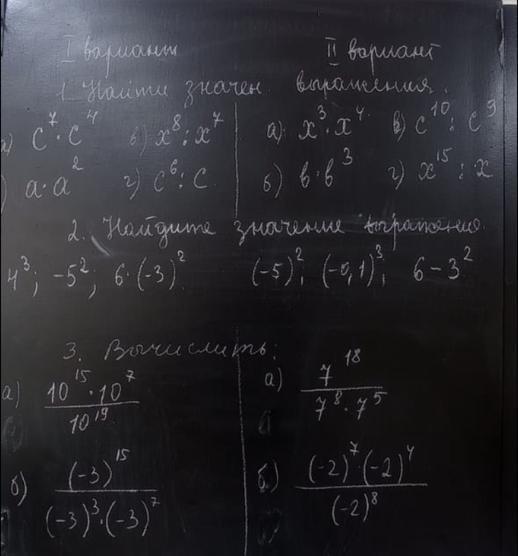 I вариант II вариант
1. Найти значен. выражения.
а) c⁷·c⁴ в) x⁸:x⁷ а) x³·x⁴ в) c¹⁰:c⁹
) a·a² г) c⁶:c б) b·b³ г) x¹⁵:x
2. Найдите значение выражения
4³; -5²; 6·(-3)² (-5)²; (-0,1)³; 6-3²
3. Вычислить:
а) (10¹⁵·10⁷)/10¹⁹ а) 7¹⁸/(7⁸·7⁵)
б) (-3)¹⁵/((-3)³·(-3)⁷) б) ((-2)⁷·(-2)⁴)/(-2)⁸